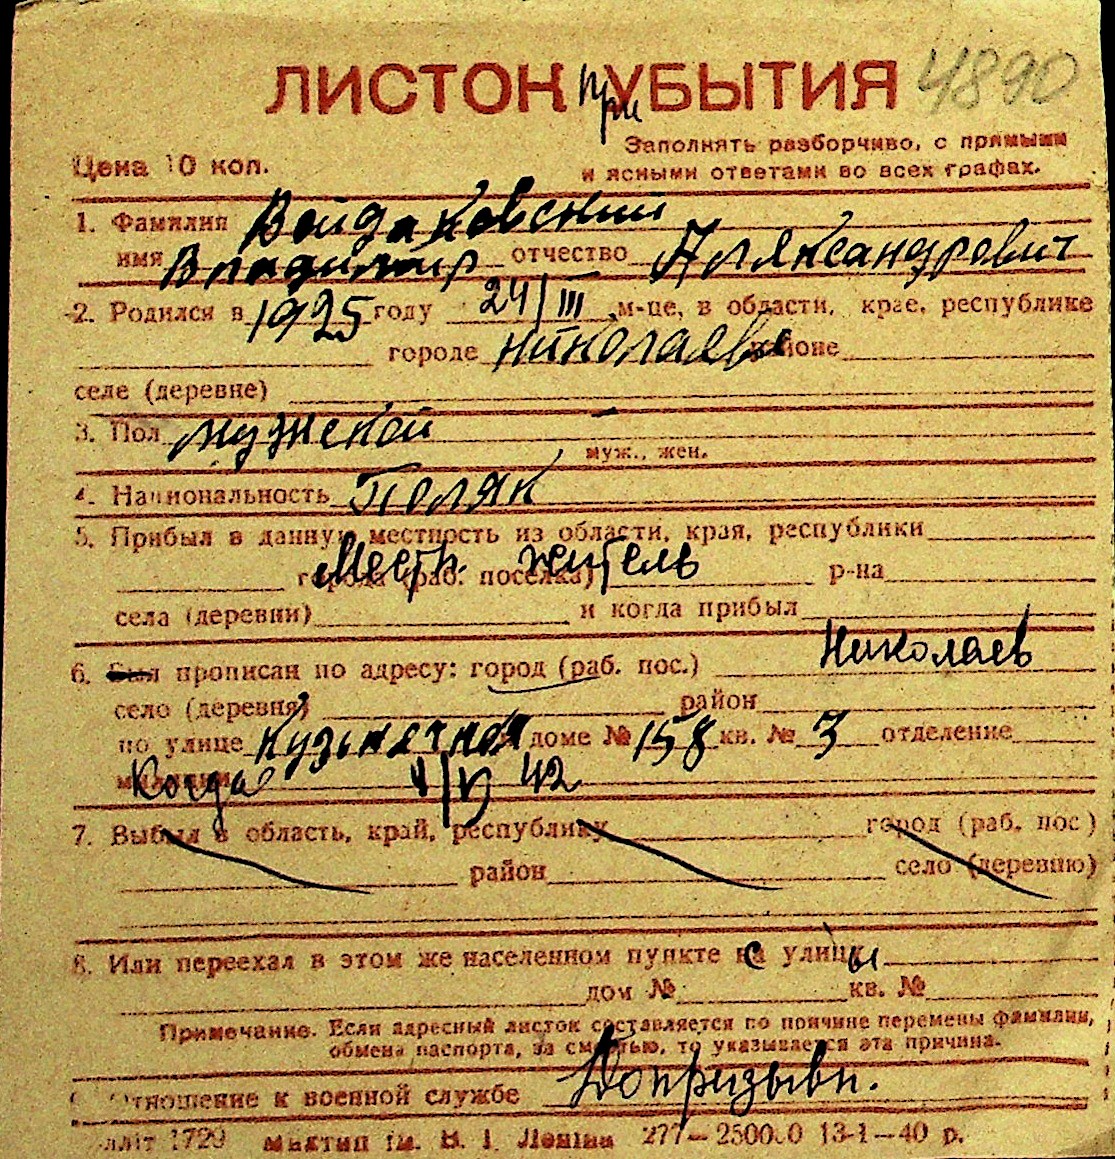 ЛИСТОК при УБЫТИЯ 4890
Цена 10 коп.
Заполнять разборчиво, с прямыми
и ясными ответами во всех графах.
1. Фамилия Войдаковский
имя Владимир отчество Александрович
2. Родился в 1925 году 24/III м-це, в области, крае, республике
городе Николаеве районе
селе (деревне)
3. Пол мужской
муж., жен.
4. Национальность Поляк
5. Прибыл в данную местность из области, края, республики
города (раб. поселка) Местн. житель р-на
села (деревни) и когда прибыл
6. Был прописан по адресу: город (раб. пос.) Николаев
село (деревня) район
по улице Кузнечной доме № 158 кв. № 3 отделение
милиции Когда 42
7. Выбыл в область, край, республику город (раб. пос)
район село (деревню)
8. Или переехал в этом же населенном пункте с улицы
дом № кв. №
Примечание. Если адресный листок составляется по причине перемены фамилии,
обмена паспорта, за смертью, то указывается эта причина.
Отношение к военной службе Допризывн.
1729 им. В. І. Леніна 277—250000 13-1—40 р.